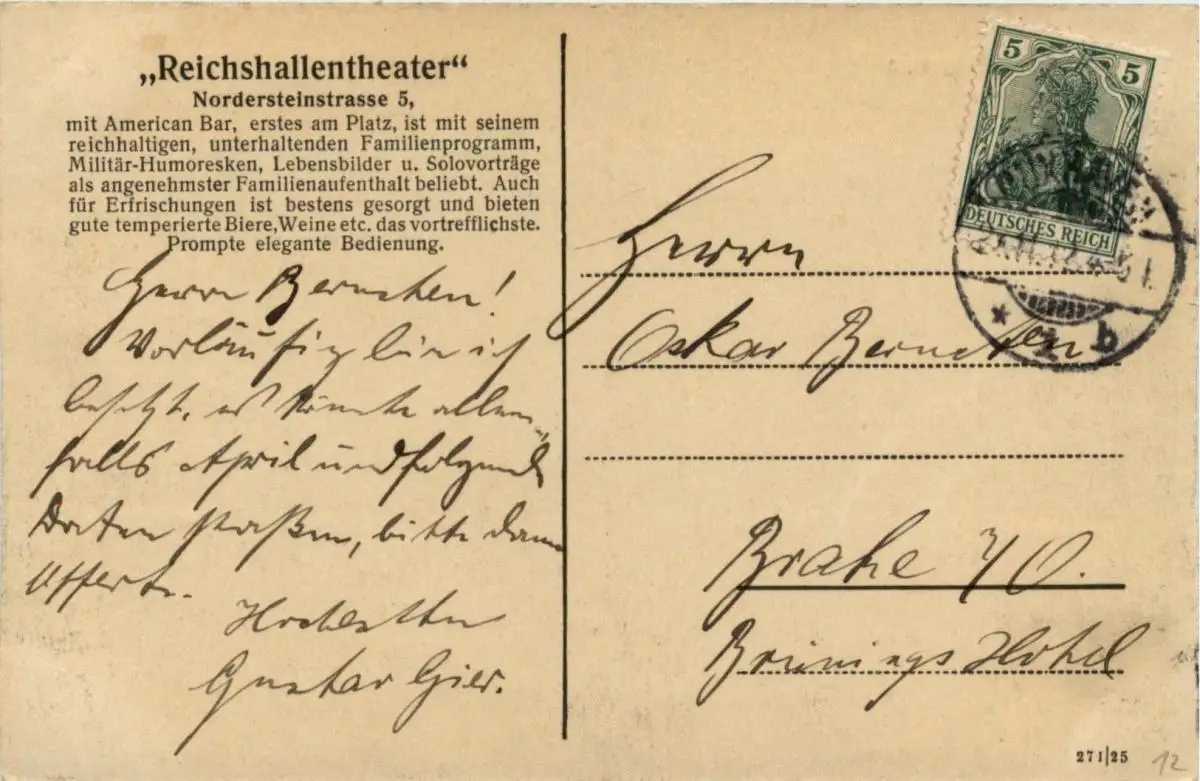 „Reichshallentheater“
Nordersteinstrasse 5,
mit American Bar, erstes am Platz, ist mit seinem
reichhaltigen, unterhaltenden Familienprogramm,
Militär-Humoresken, Lebensbilder u. Solovorträge
als angenehmster Familienaufenthalt beliebt. Auch
für Erfrischungen ist bestens gesorgt und bieten
gute temperierte Biere, Weine etc. das vortrefflichste.
Prompte elegante Bedienung.
Herrn Berncten!
Vorläufig bin ich
besetzt, es könnte allen-
falls April und folgende
Daten passen, bitte dann
Offerte.
Gustav Gier.
5 5
DEUTSCHES REICH
CUXHAVEN
* 1 b
Herrn
Oskar Berncten
Brake
Brünings Hotel
271|25
12